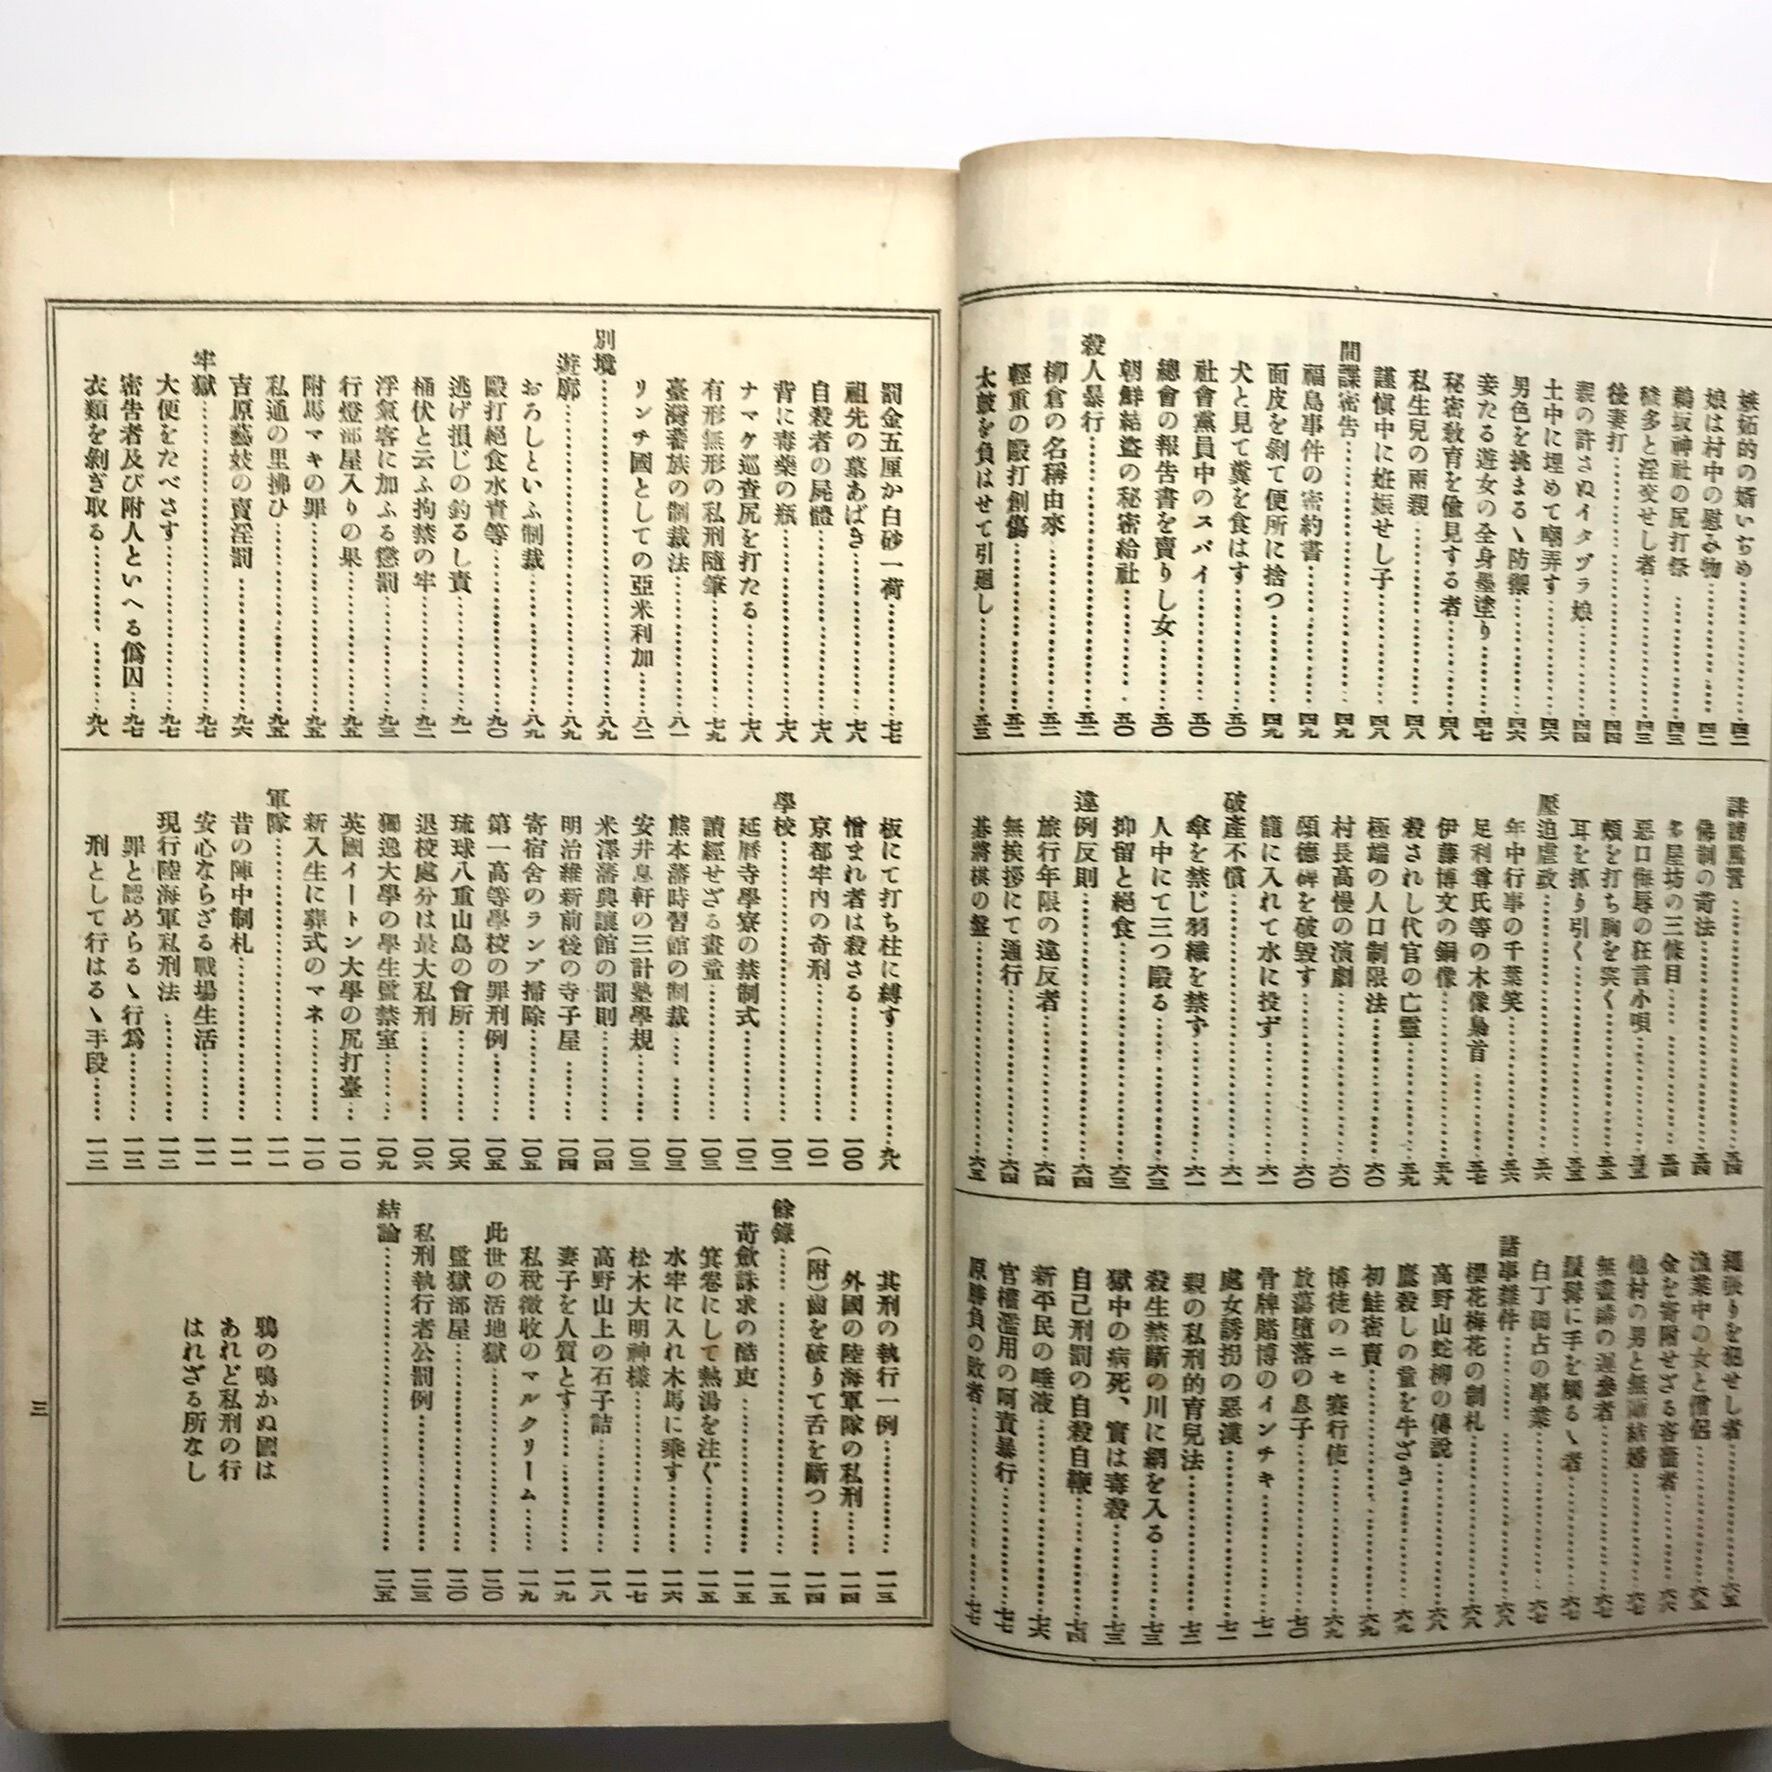 嫉妬的の婿いぢめ……四二
娘は村中の慰み物……四二
鵜坂神社の尻打祭……四三
穢多と淫交せし者……四三
後妻打……四四
親の許さぬイタヅラ娘……四四
土中に埋めて嘲弄す……四六
男色を挑まるゝ防禦……四六
妾たる遊女の全身墨塗り……四七
秘密敎育を偸見する者……四八
私生兒の兩親……四八
謹愼中に姙娠せし子……四八
間諜密告……四九
福島事件の密約書……四九
面皮を剝て便所に捨つ……四九
犬と見て糞を食はす……五〇
社會黨員中のスパイ……五〇
總會の報告書を賣りし女……五〇
朝鮮結盜の秘密給社……五〇
殺人暴行……五二
柳倉の名稱由來……五二
輕重の毆打創傷……五二
太鼓を負はせて引廻し……五三
誹謗罵詈……五四
佛制の苛法……五四
多屋坊の三條目……五四
惡口侮辱の狂言小唄……五五
頰を打ち胸を突く……五五
耳を抓り引く……五五
壓迫虐政……五六
年中行事の千葉笑……五六
足利尊氏等の木像梟首……五七
伊藤博文の銅像……五九
殺されし代官の亡靈……五九
極端の人口制限法……六〇
村長高慢の演劇……六〇
頌德碑を破毀す……六〇
籠に入れて水に投ず……六一
破產不償……六一
傘を禁じ羽織を禁ず……六一
人中にて三つ毆る……六三
抑留と絕食……六三
違例反則……六四
旅行年限の違反者……六四
無挨拶にて通行……六四
碁將棋の盤……六五
繩張りを犯せし者……六五
漁業中の女と僧侶……六五
金を寄附せざる吝嗇者……六六
他村の男と無斷結婚……六七
無盡講の遲參者……六七
鬚髯に手を觸るゝ者……六七
白丁獨占の事業……六七
諸事雜件……六八
櫻花梅花の制札……六八
高野山蛇柳の傳說……六八
鷹殺しの童を牛ざき……六九
初鮭密賣……六九
博徒のニセ賽行使……六九
放蕩墮落の息子……七〇
骨牌賭博のインチキ……七一
處女誘拐の惡漢……七一
親の私刑的育兒法……七二
殺生禁斷の川に網を入る……七三
獄中の病死、實は毒殺……七三
自己刑罰の自殺自鞭……七四
新平民の唾液……七六
官權濫用の呵責暴行……七七
原勝負の敗者……七七
罰金五厘か白砂一荷……七七
祖先の墓あばき……七八
自殺者の屍體……七八
背に毒藥の瓶……七八
ナマケ巡査尻を打たる……七八
有形無形の私刑隨筆……七九
臺灣蕃族の制裁法……八一
リンチ國としての亞米利加……八二
別墳……八九
遊廓……八九
おろしといふ制裁……八九
毆打絕食水責等……九〇
逃げ損じの釣るし責……九一
桶伏と云ふ拘禁の牢……九二
浮氣客に加ふる懲罰……九三
行燈部屋入りの果……九五
附馬マキの罪……九五
私通の里拂ひ……九五
吉原藝妓の賣淫罰……九六
牢獄……九七
大便をたべさす……九七
密告者及び附人といへる僞囚……九七
衣類を剝ぎ取る……九八
板にて打ち柱に縛す……九八
憎まれ者は殺さる……一〇〇
京都牢內の奇刑……一〇一
學校……一〇二
延曆寺學寮の禁制式……一〇二
讀經せざる晝童……一〇三
熊本藩時習館の制裁……一〇三
安井息軒の三計塾學規……一〇三
米澤藩興讓館の罰則……一〇四
明治維新前後の寺子屋……一〇四
寄宿舍のランプ掃除……一〇五
第一高等學校の罪刑例……一〇五
琉球八重山島の會所……一〇六
退校處分は最大私刑……一〇六
獨逸大學の學生監禁室……一〇九
英國イートン大學の尻打臺……一一〇
新入生に葬式のマネ……一一〇
軍隊……一一一
昔の陣中制札……一一一
安心ならざる戰場生活……一一一
現行陸海軍私刑法……一一二
罪と認めらるゝ行爲……一一二
刑として行はるゝ手段……一一二
其刑の執行一例……一一三
外國の陸海軍隊の私刑……一一四
（附）齒を破りて舌を斷つ……一一四
餘錄……一一五
苛斂誅求の酷吏……一一五
箕卷にして熱湯を注ぐ……一一五
水牢に入れ木馬に乘す……一一六
松木大明神樣……一一七
高野山上の石子詰……一一八
妻子を人質とす……一一九
私稅徵收のマルクリーム……一一九
此世の活地獄……一二〇
監獄部屋……一二〇
私刑執行者公罰例……一二三
結論……一二五
鴉の鳴かぬ國は
あれど私刑の行
はれざる所なし
三